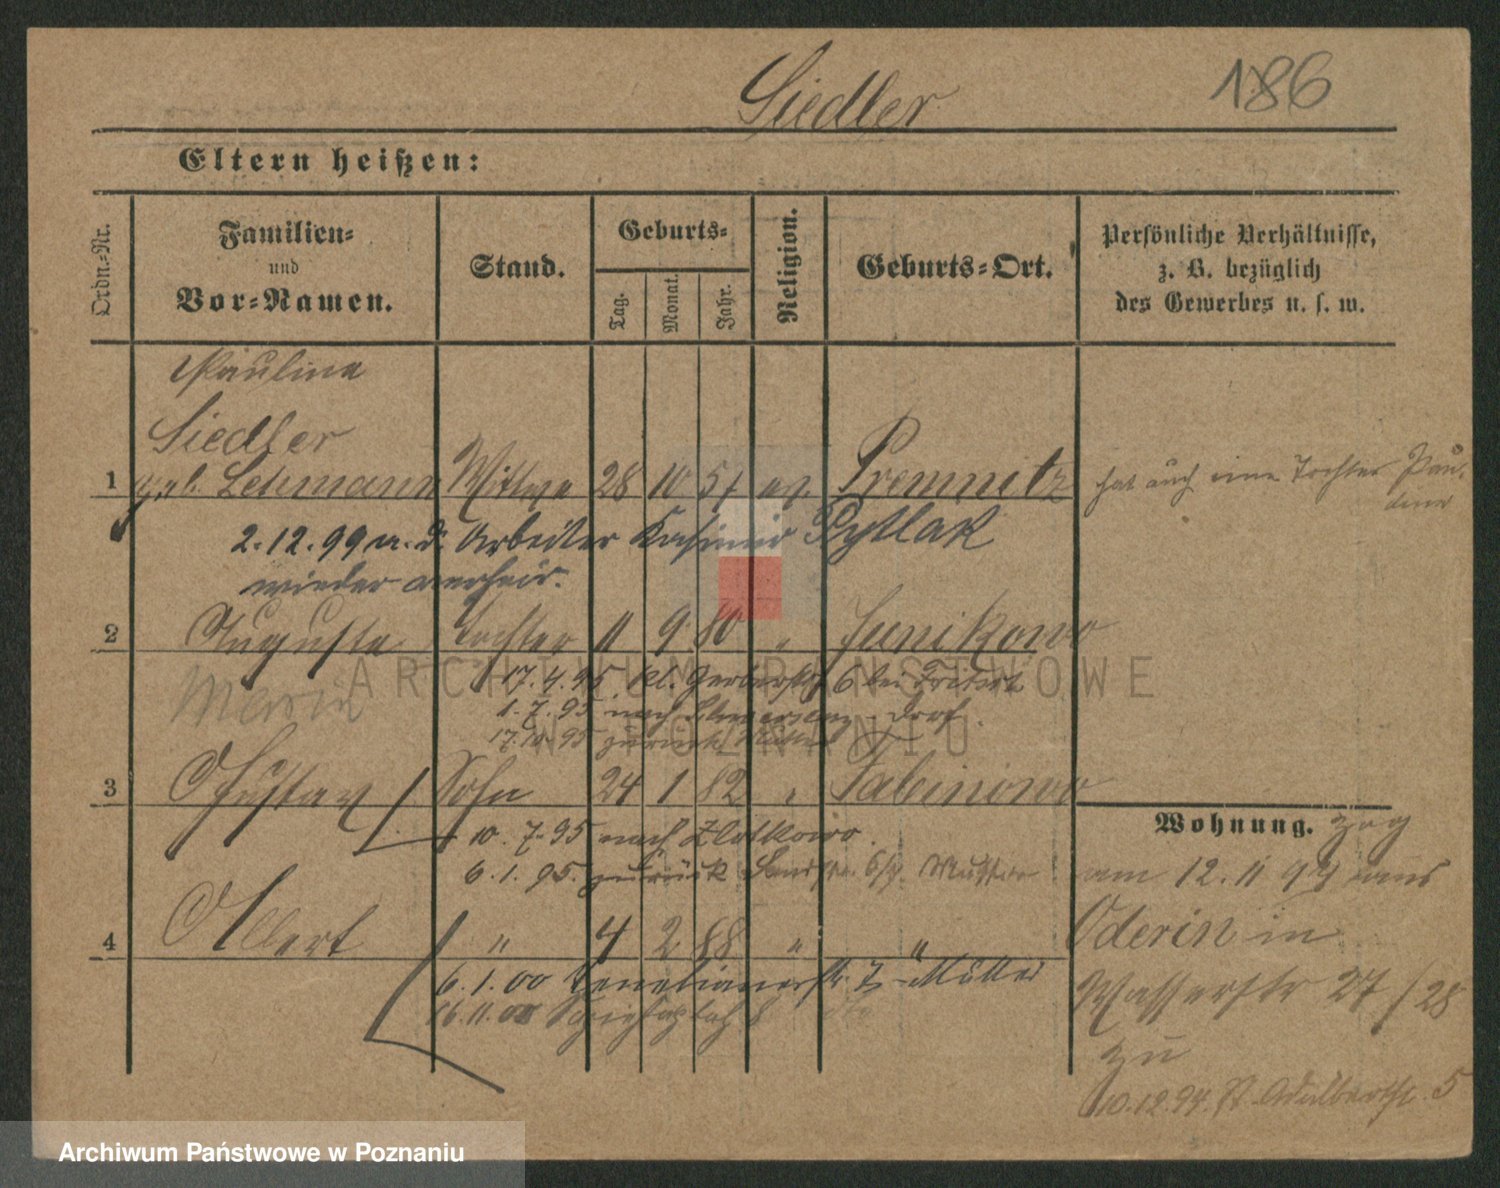 Siedler
186
Eltern heißen:
Ordn.-Nr.
Familien-
und
Vor-Namen.
Stand.
Geburts-
Tag.
Monat.
Jahr.
Religion.
Geburts-Ort.
Persönliche Verhältnisse,
z. B. bezüglich
des Gewerbes u. s. w.
Paulina
Siedler
1 geb. Lehmann Wittwe 28 10 51 ev. Premnitz hat auch eine Tochter Pau-
line
2.12.99 m. d. Arbeiter Kasimir Pytlak
wieder verheir.
2 Auguste Tochter 11 9 80 " Junikowo
17.4.95 kl. Gerberstr 6 bei
1.7.95 nach Schwersenz-Dorf.
17.10.95 zurück Mutter
Maria
3 Gustav Sohn 24 1 82 " Sabinowo
10.7.95 nach Zlotkowo.
6.1.95. zurück Mutter
Wohnung. zog
am 12.11 94 aus
Oderin in
Wasserstr 27/28
zu
10.12.94. St. Adalbertstr. 5
4 Albert " 4 2 88 " "
6.1.00 Venetianerstr. 7 - Mutter
16.11.00 Sapiehaplatz 8
ARCHIWUM PAŃSTWOWE
W POZNANIU
Archiwum Państwowe w Poznaniu